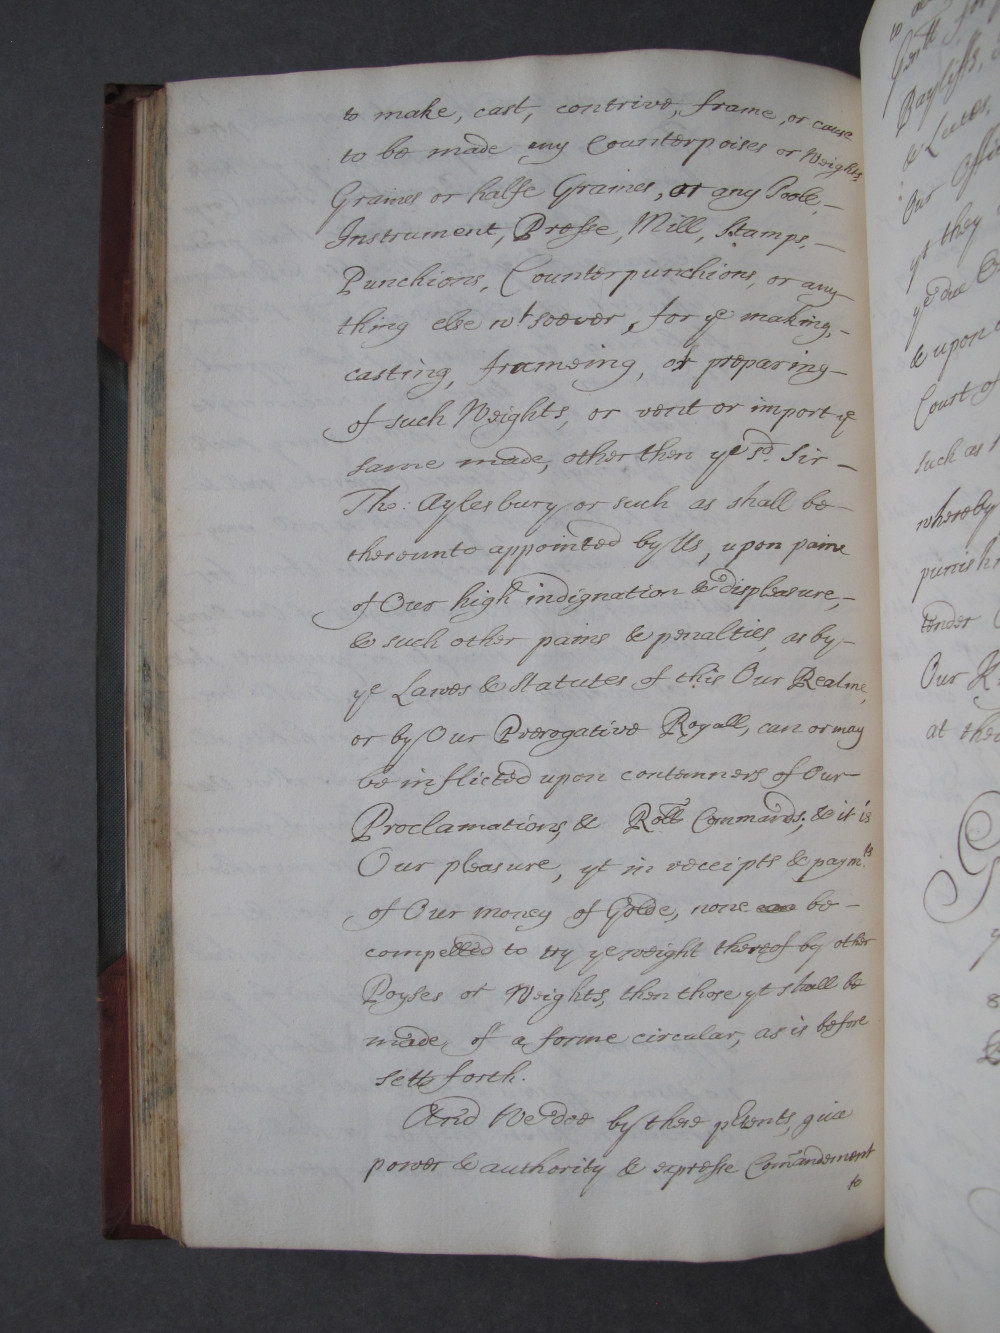 to make, cast, contrive, frame, or cause
to be made any Counterpoises or Weights
Graines or halfe Graines, or any Toole,
Instrument, Presse, Mill, Stamps,
Punchions, Counterpunchions, or any
thing else wtsoever, for ye making,
casting, frameing, or preparing
of such Weights, or vent or import ye
same made, other then ye sd. Sir
Tho: Aylesbury or such as shall be
thereunto appointed by Us, upon paine
of Our high indignation & displeasure,
& such other pains & penalties, as by
ye Lawes & Statutes of this Our Realme,
or by Our Prerogative Royall, can or may
be inflicted upon contemners of Our
Proclamations, & Roll Commands; & it is
Our pleasure, yt in receipts & paymts.
of Our money of Golde, none be
compelled to try ye weight thereof by other
Poyses or Weights, then those yt shall be
made of a forme circular, as is before
sett forth.
And We doe by these psents, give
power & authority & expresse Comandement
to
to
Gent for
Bayliffs,
& Lieuts,
Our Offi
yt they
ye due
& upon
Court of
such as
whereby
punish
tender
Our
at thei